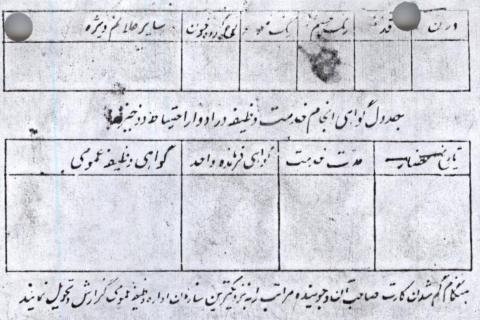 وزن قد رنگ چشم رنگ مو گروه خون سایر علائم ویژه
جدول گواهی انجام خدمت وظیفه در ادوار احتیاط و ذخیره
تاریخ احضار مدت خدمت گواهی فرمانده واحد گواهی وظیفه عمومی
هنگام گم شدن کارت صاحب آن و جوینده مراتب را به نزدیکترین سازمان اداره وظیفه عمومی گزارش و تحویل نمایند